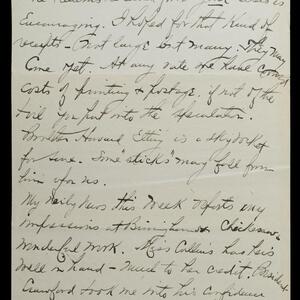 The returns from your letters is
Encouraging. I hoped for that kind of
receipts – Not large but many. They may
Come yet. At any rate we have covered
Costs of printing & postage, if not of the
toil you put into the
Brother Howard Etting is a sky rocket
for sure. Some "sticks" may fall from
him upon us.
My Daily News this week reports my
impressions at Birmingham
wonderful work. Miss Collins has his
well in hand – Much to her credit. President
Crawford took me into his confidence